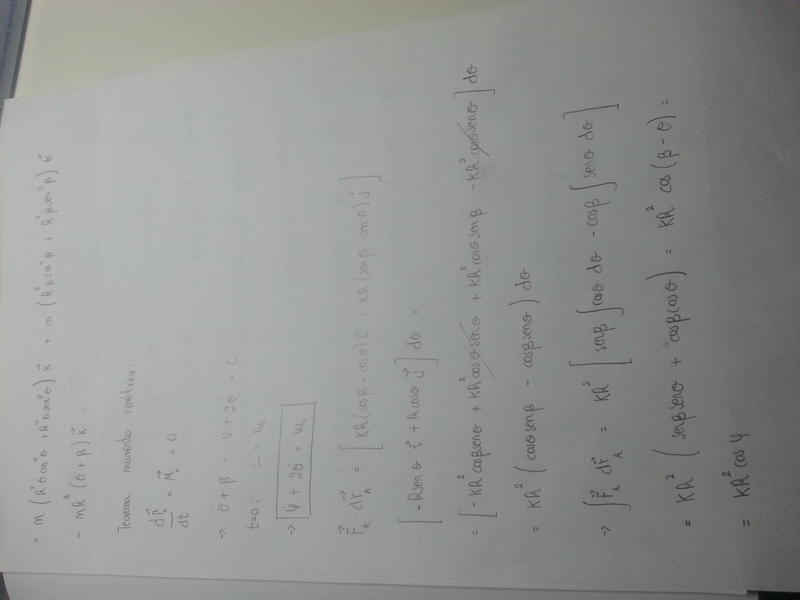 = m (h²θ̇cos²θ + h²θ̇sen²θ) k⃗ + m (h²β̇cos²β + h²β̇sen²β) k⃗
= mh² (θ̇ + β̇) k⃗
Teorema momento cinético:
dH⃗₀/dt = M⃗₀ = 0
→ θ̇ + β̇ = ψ̇ + 2θ̇ = C
t=0; C = ω₀
→ ψ̇ + 2θ̇ = ω₀
F⃗_A · dr⃗_A = [kh(cosβ - cosθ) i⃗ + kh(senβ - senθ) j⃗] ·
· [-hsenθ i⃗ + hcosθ j⃗] dθ =
= [-kh²cosβsenθ + kh²cosθsenθ + kh²cosθsenβ - kh²cosθsenθ] dθ
= kh² (cosθsenβ - cosβsenθ) dθ
→ ∫ F⃗_A dr⃗_A = kh² [senβ ∫ cosθ dθ - cosβ ∫ senθ dθ]
= kh² (senβsenθ + cosβcosθ) = kh² cos(β - θ) =
= kh² cosψ